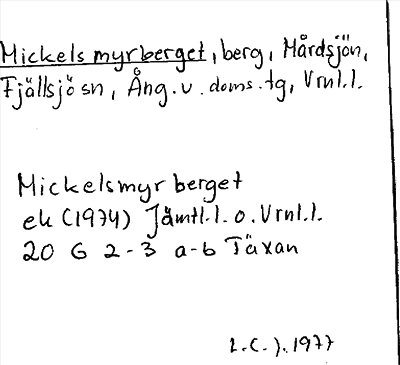 Mickelsmyrberget, berg, Mårdsjön,
Fjällsjö sn, Ång. v. doms. tg, Vrnl.l.
Mickelsmyrberget
ek (1974) Jämtl.l. o. Vrnl.l.
20 G 2-3 a-b Täxan
L.C.J. 1977